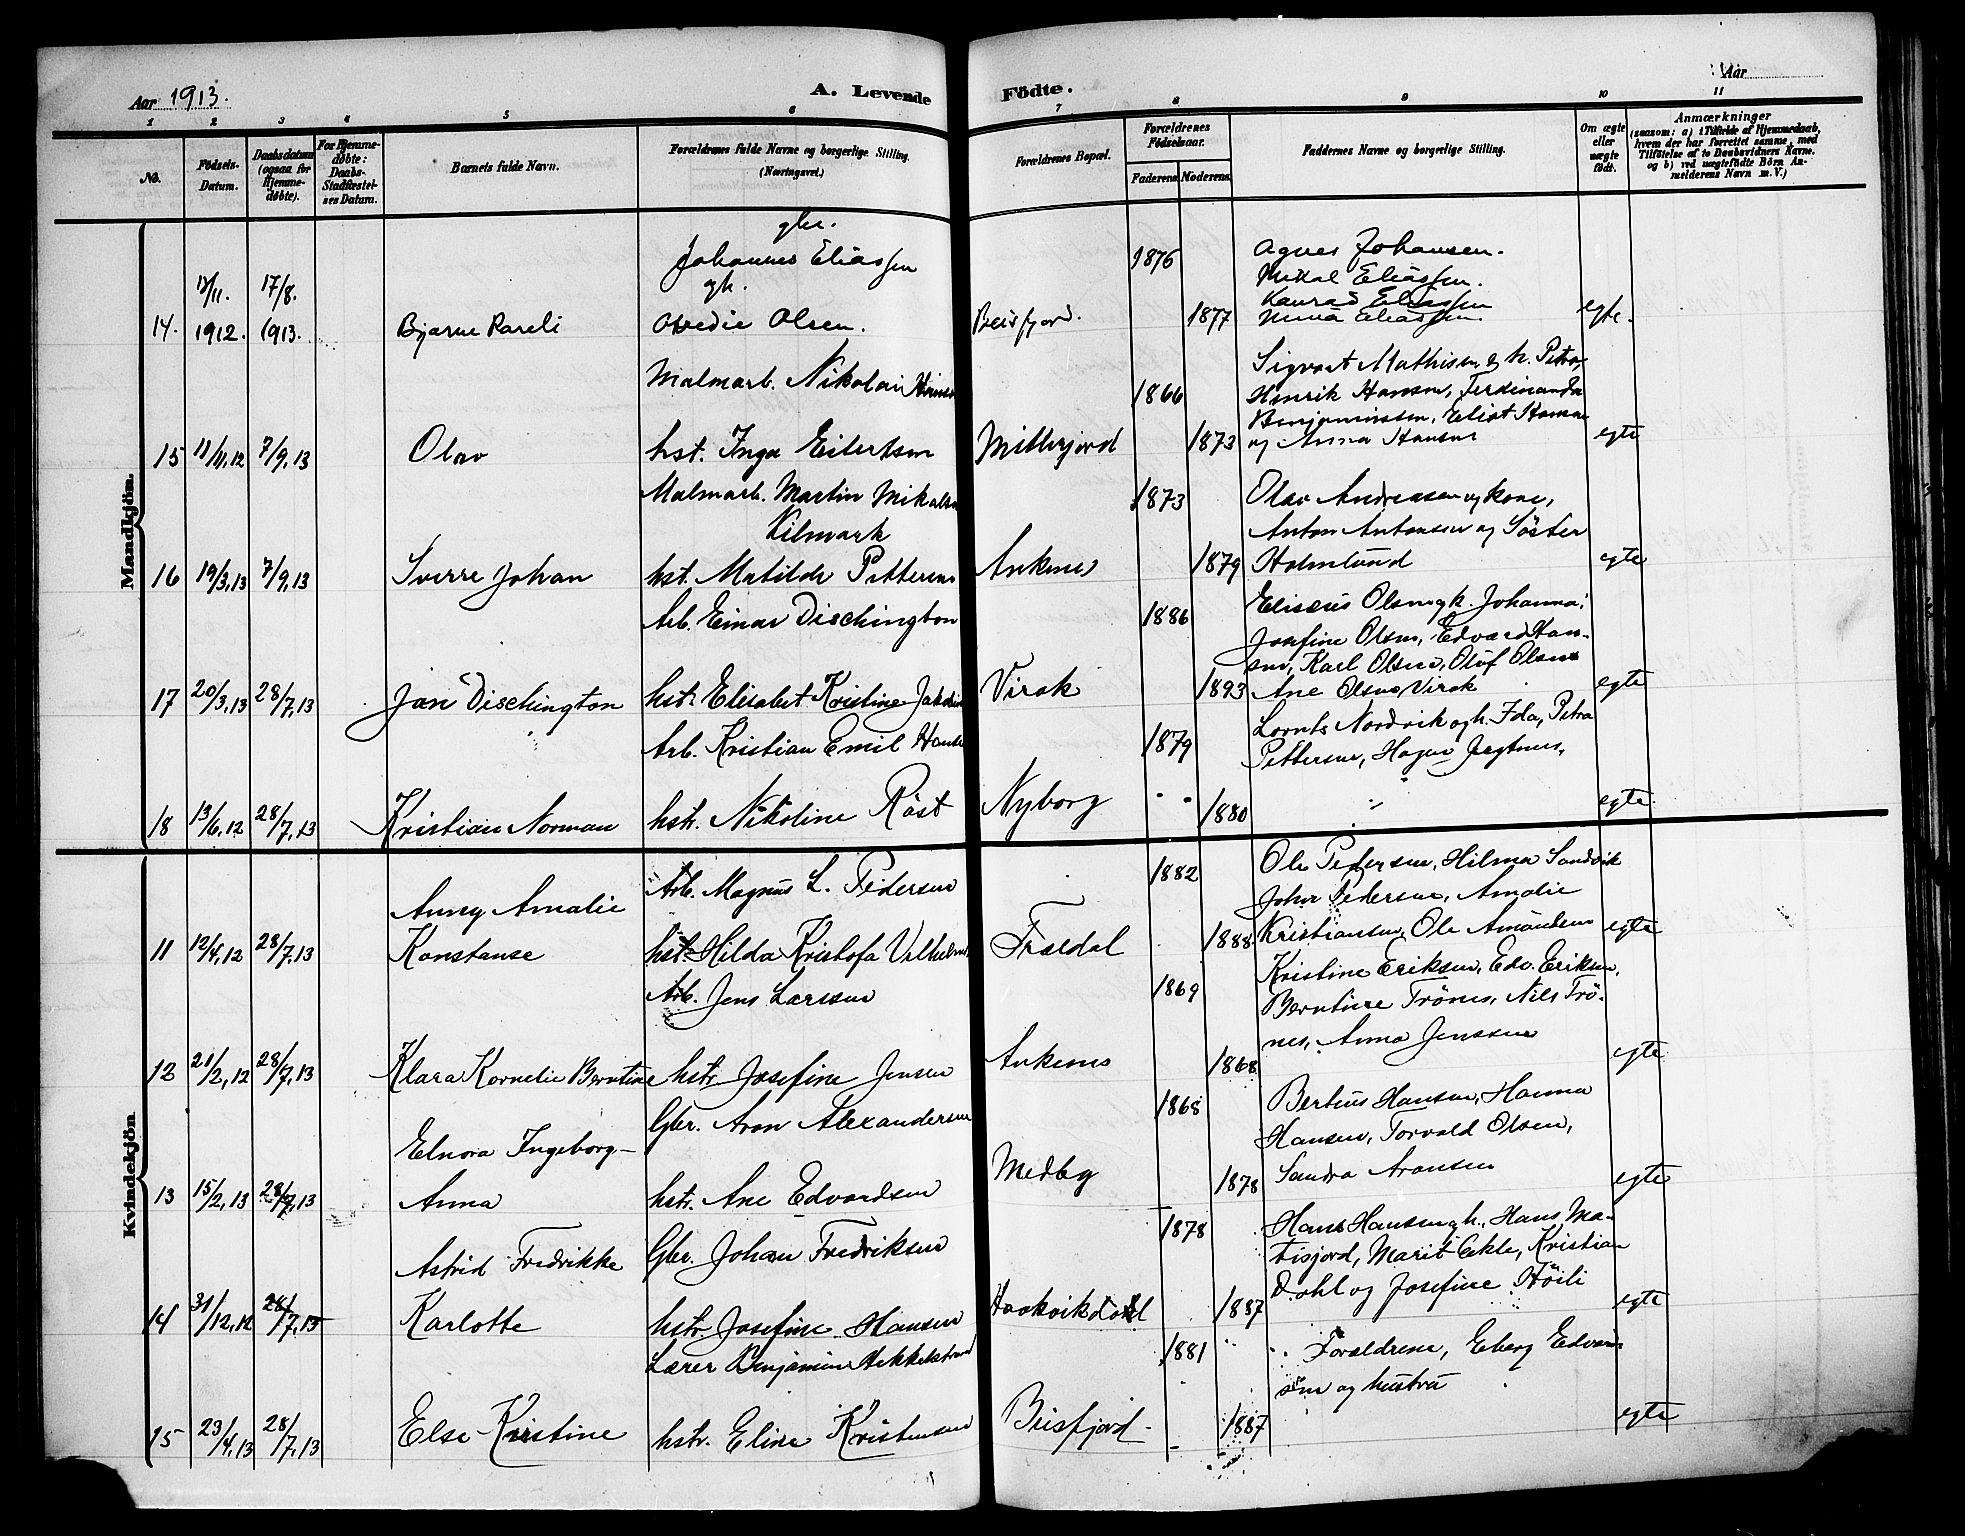 Aar 1913.
A. Levende
Födte.
Aar
1 2 3 4 5 6 7 8 9 10 11
No.
Födsels-
Datum.
Daabsdatum
(ogsaa for
Hjemme-
døbte).
For Hjemme-
døbte:
Daabs-
Stadfæstel-
ses Datum.
Barnets fulde Navn.
Forældrenes fulde Navne og borgerlige Stilling.
(Næringsvei.)
Forældrenes Bopæl.
Forældrenes
Födselsaar.
Faderens Moderens
Faddernes Navne og borgerlige Stilling.
Om ægte
eller
uægte
født.
Anmærkninger
(saasom: a) i Tilfælde af Hjemmedaab,
hvem der har forrettet samme, med
Tilföielse af to Daabsvidners Navne.
og b) ved uægtefödte Börn An-
melderens Navn m. V.)
Mandkjön.
gbr.
Johannes Eliassen
1876
Agnes Johansen.
Mikal Eliassen.
17/8.
gh.
Konrad Eliassen
14. 1912. 1913. Bjarne Pareli Ovedie Olsen. Beisfjord. 1877 Eliassen. egte.
Malmarb. Nikolai Hansen
1866
Sigvart Mathisen og h. Petra,
Henrik Hansen, Ferdinanda
Benjaminssen, Eliot Hansen
15 11/11,12 7/9,13 Olav hst. Inga Eilertsen 1873 og Anna Hansen egte
Malmarb. Martin Mikalsen
Kilmark
1873
Olav Andreassen og kone,
Anton Antonsen og Söster
16 19/3,13 7/9,13 Sverre Johan hst. Matilde Pettersen Ankenes 1879 Holmlund egte
Arb. Einar Dischington
1886
Eliseus Olsen og h. Johanna,
Josefine Olsen, Edvard Han-
sen, Karl Olsen, Oluf Olsen
17 20/3,13 28/7,13 Jan Dischington hst. Elisabet Kristine Virak 1893 Ane Olsen Virak egte
Arb. Kristian Emil Hansen
1879
Lornts Nordvik og h. Ida, Petra
Pettersen, Hagen Jegtnes,
18 13/6,12 28/7,13 Kristian Norman hstr. Nikoline Röst Nyborg " " 1880 " egte
Kvindekjön
Arb. Magnus L. Pedersen
1882
Ole Pedersen, Hilma Sandvik
Johan Pedersen, Amalie
Anny Amalie
11 12/4,12 28/7,13 Konstanse hst. Hilda Kristofa Vilhelmsen Trældal 1888 Kristiansen, Ole Amundsen egte
Arb. Jens Larssen
1869
Kristine Eriksen, Edv. Eriksen,
Berntine Trönes, Nils Trö-
nes, Anna Jenssen
12 21/2,12 28/7,13 Klara Kornelie Berntine hstr. Josefine Jensen Ankenes 1868 egte
Gbr. Aron Alexandersen
1868
Berteus Hansen, Hanna
Hansen, Torvald Olsen,
Elnora Ingeborg-
13 15/2,13 28/7,13 Anna hstr. Ane Edvardsen Medby 1878 Sandra Aronsen egte
Gbr. Johan Fredriksen
1878
Hans Hansen og h., Hans Ma-
tisjord, Marit Eckle, Kristian
Astrid Fredrikke
Dahl og Josefine Höili
14 31/12,12 28/7,13 Karlotte hstr. Josefine Hansen Haakvikdal 1887 egte
Lærer Benjamin Hekkelstrand
1881 " " Forældrene, Eberg Edvard-
sen og hustru
15 23/4,13 28/7,13 Else Kristine hstr. Eline Kristensen Beisfjord 1887 egte